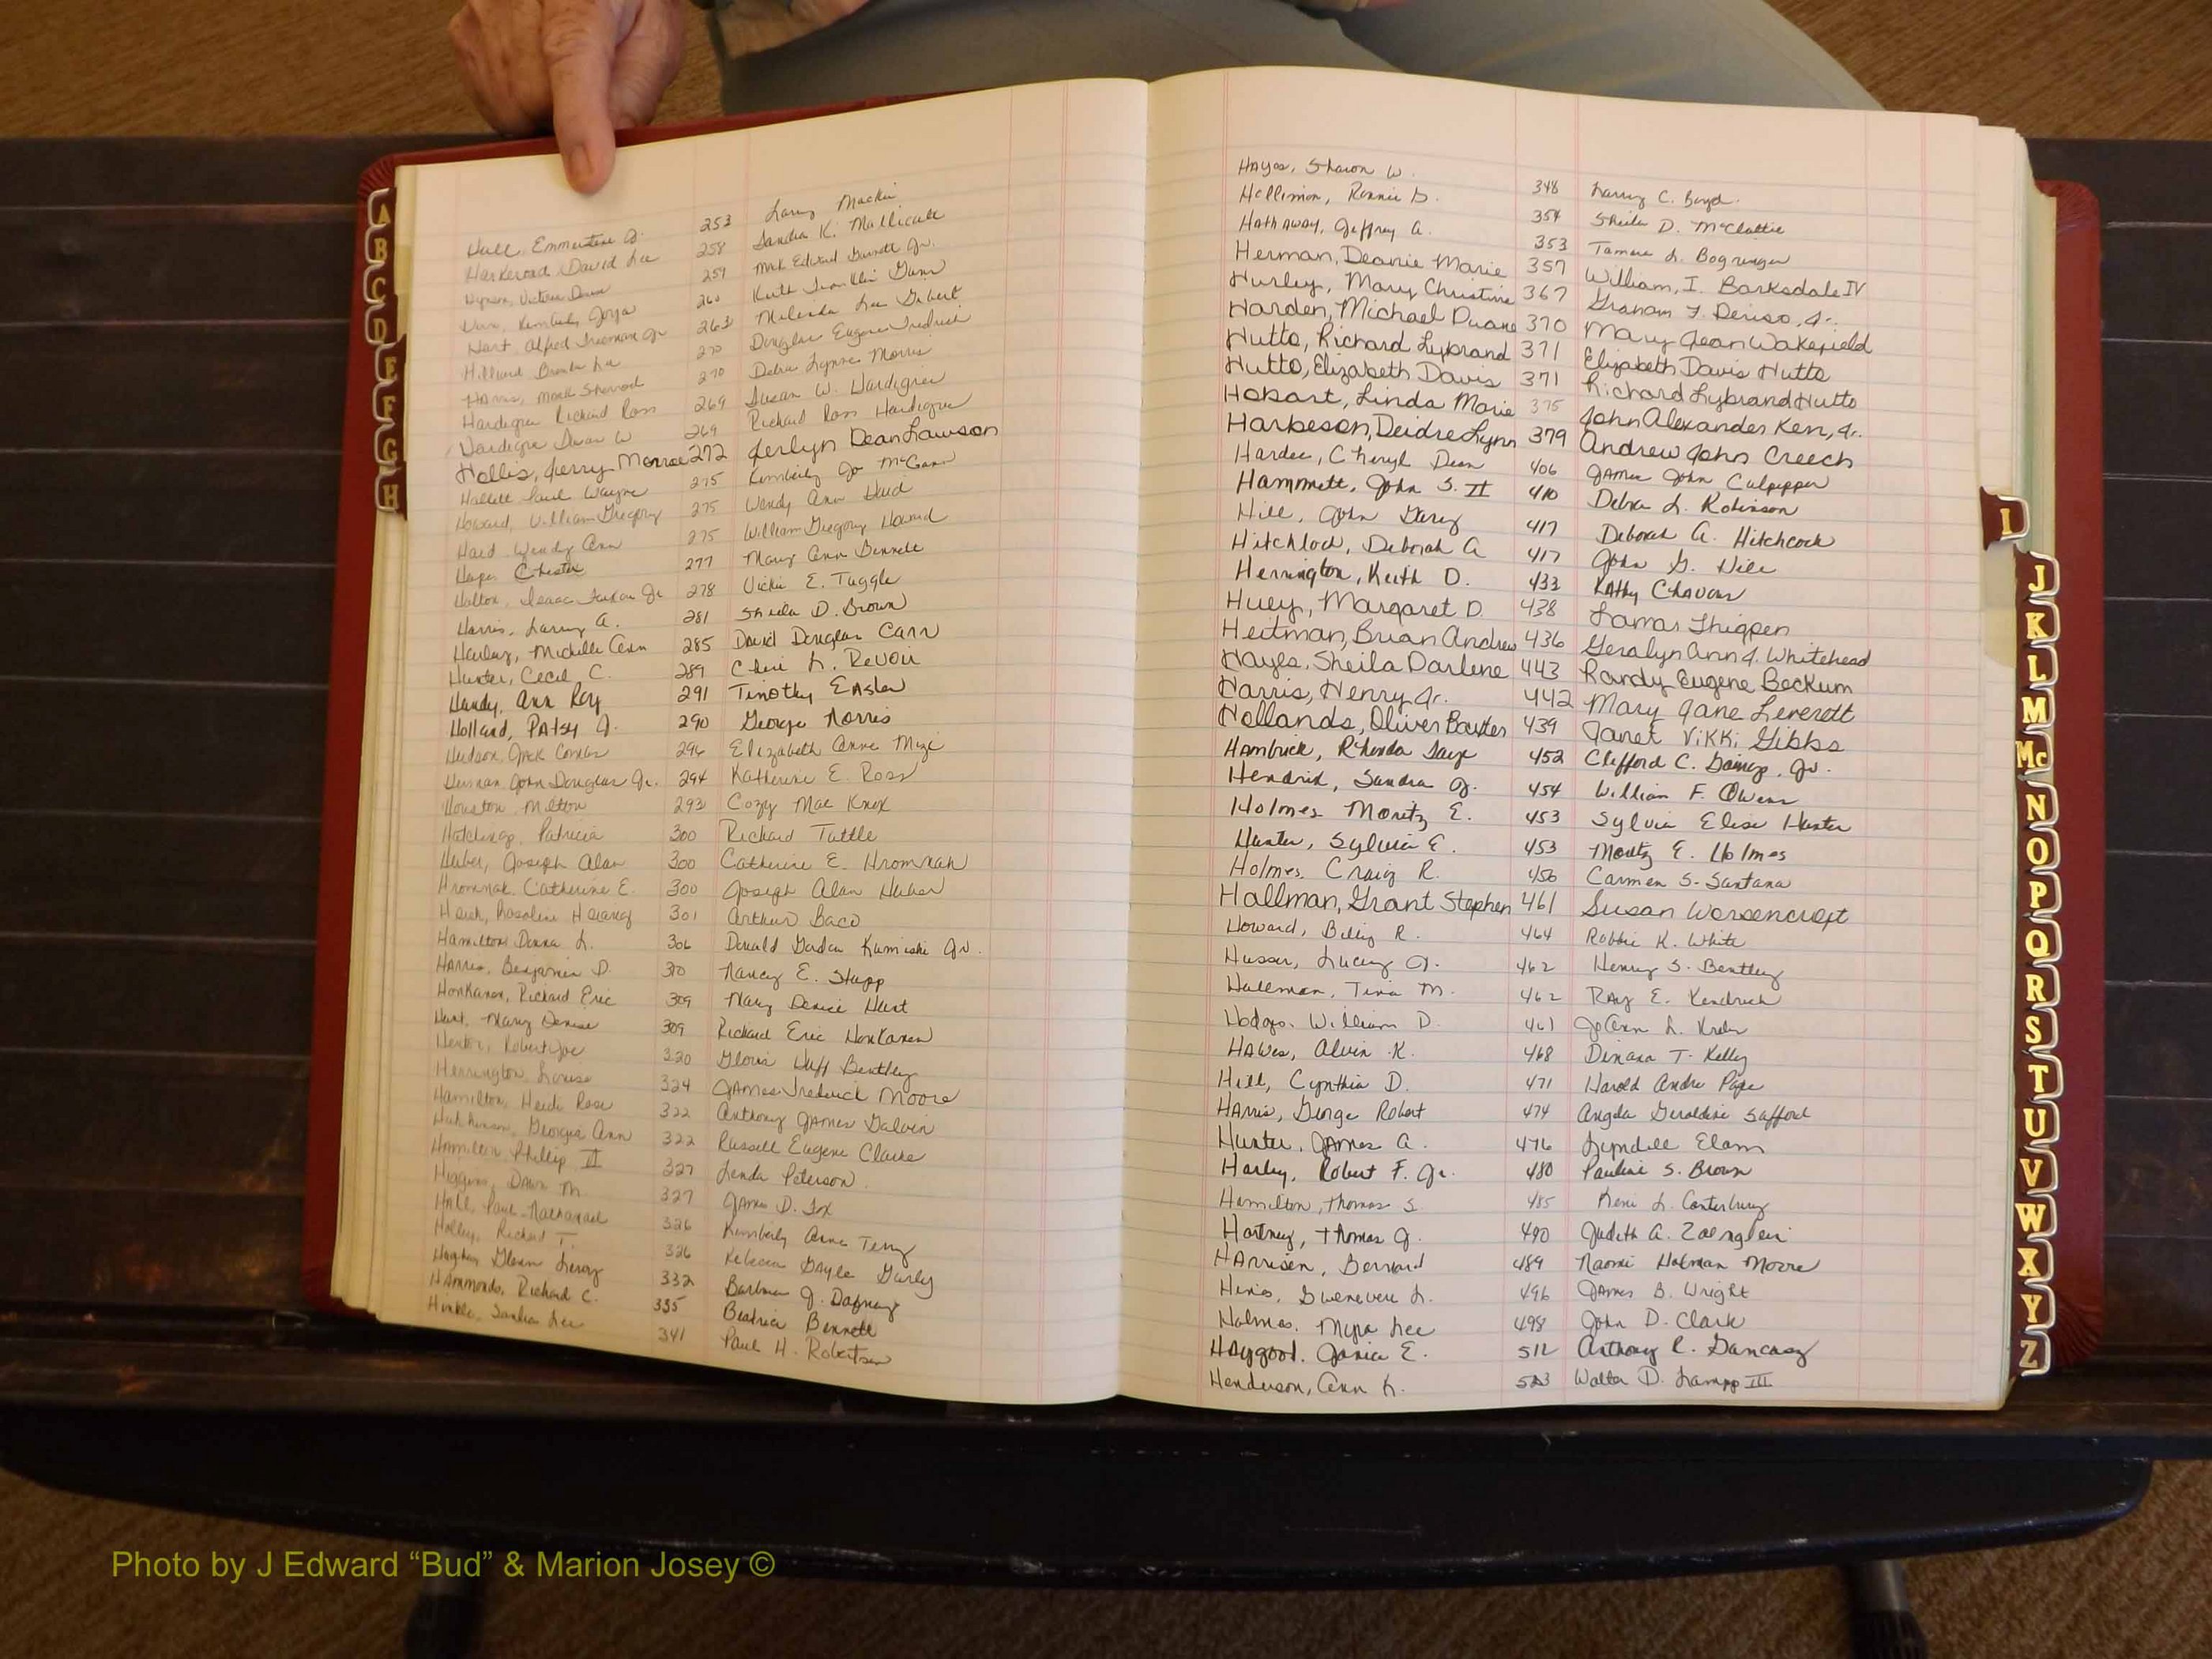 Hall, Emmertine J. 253 Larry Mackie
Harkeroad, David Lee 258 Sandra K. Mallicoat
259 Mark Edward Garrett Jr.
Kimberly Joya 260 Keith Franklin Gunn
Hart, Alfred Freeman Jr 263 Melinda Lee Gilbert
Hilliard Brenda Lee 270 Douglas Eugene Fredrick
Harris, Mark Sherrod 270 Debra Lynne Morris
Hardigree Richard Ross 269 Susan W. Hardigree
Hardigree Susan W 269 Richard Ross Hardigree
Hollis, Jerry Monroe 272 Jerlyn Dean Lawson
Hallett Paul Wayne 275 Kimberly Jo McGann
Howard, William Gregory 275 Wendy Ann Haid
Haid Wendy Ann 275 William Gregory Howard
Hayes Chester 277 Mary Ann Bennett
Holton, Isaac Jr 278 Vickie E. Tuggle
Harris, Larry A. 281 Sheila D. Brown
Harley, Michelle Ann 285 David Douglas Carr
Hunter, Cecil C. 289 Cheri L. Revoir
Handy, Ann Roy 291 Timothy Easler
Holland, Patsy J. 290 George Norris
Hudson, Jack Comer 296 Elizabeth Anne Mize
Herman, John Douglas Jr. 294 Katherine E. Ross
Houston, Milton 293 Cozy Mae Knox
Hotchings, Patricia 300 Richard Tuttle
Huber, Joseph Alan 300 Catherine E. Hromnak
Hromnak, Catherine E. 300 Joseph Alan Huber
Hsieh, Rosaline Hsiang 301 Arthur Baco
Hamilton Donna L. 306 Donald Gordon Kamieski Jr.
Harris, Benjamin D. 310 Nancy E. Stupp
Honkanen, Richard Eric 309 Mary Denise Hurt
Hurt, Mary Denise 309 Richard Eric Honkanen
Hester, Robert Joe 320 Gloria Huff Bentley
Herrington, Louise 324 James Frederick Moore
Hamilton, Heidi Rose 322 Anthony James Galvin
Hutchinson, Georgia Ann 322 Russell Eugene Clarke
Hamilton Phillip II 327 Linda Peterson
Higgins, Dawn M. 327 James D. Fox
Hall, Paul Nathanael 326 Kimberly Anne Terry
Holley, Richard T. 326 Rebecca Gayle Gurly
Hayden Glenn Leroy 332 Barbara J. Dabney
Hammonds, Richard C. 335 Beatrice Bennett
Hinkle, Sandra Lee 341 Paul H. Robertson
Hayes, Sharon W. 348 Larry C. Boyd
Hollimon, Ronnie D. 354 Sheila D. McClattie
Hathaway, Jeffrey A. 353 Tamera L.
Herman, Deanie Marie 357 William, I. Barksdale IV
Hurley, Mary Christine 367 Graham F. Deriso, Jr.
Harden, Michael Duane 370 Mary Jean Wakefield
Hutto, Richard Lybrand 371 Elizabeth Davis Hutto
Hutto, Elizabeth Davis 371 Richard Lybrand Hutto
Hobart, Linda Marie 375 John Alexander Ken, Jr.
Harbeson, Deidre Lynn 379 Andrew John Creech
Hardee, Cheryl Dean 406 James John Culpepper
Hammett, John S. II 410 Debra L. Robinson
Hill, John Gary 417 Deborah A. Hitchcock
Hitchlock, Deborah A 417 John G. Hill
Herrington, Keith D. 433 Kathy Chavous
Huey, Margaret D. 438 Lamar Thigpen
Heitman, Brian Andrew 436 Geralyn Ann J. Whitehead
Hayes, Sheila Darlene 443 Randy Eugene Beckum
Harris, Henry Jr. 442 Mary Jane Leverett
Hollands, Oliver Baxter 439 Janet Vikki Gibbs
Hambrick, Rhonda Faye 452 Clifford C. Gainey, Jr.
Hendrix, Sandra J. 454 William F. Owens
Holmes Moritz E. 453 Sylvia Elise Hunter
Hunter, Sylvia E. 453 Moritz E. Holmes
Holmes, Craig R. 456 Carmen S. Santana
Hallman, Grant Stephen 461 Susan Worsencroft
Howard, Billy R. 464 Robbie K. White
Husser, Lucey J. 462 Henry S. Bentley
Hallman, Tina M. 462 Ray E. Kendrick
Hodges, William D. 461 JoAnn L.
Hawes, Alvin K. 468 Dinana T. Kelly
Hill, Cynthia D. 471 Harold Andre Pope
Harris, George Robert 474 Angela Geraldine Safford
Hunter, James A. 476 Lyndell Elam
Harley, Robert F. Jr. 480 Pauline S. Brown
Hamilton, Thomas S. 485 Keni L. Canterbury
Hartney, Thomas J. 490 Judith A. Zoenglein
Harrison, Bernard 489 Naomi Holman Moore
Hines, Guenevere L. 496 James B. Wright
Holmes, Myra Lee 498 John D. Clark
Haygood, Janice E. 512 Anthony R. Dancasy
Henderson, Ann K. 523 Walter D. Lampp III
A
B
C
D
E
F
G
H
I
J
K
L
M
Mc
N
O
P
Q
R
S
T
U
V
W
X
Y
Z
Photo by J Edward “Bud” & Marion Josey ©